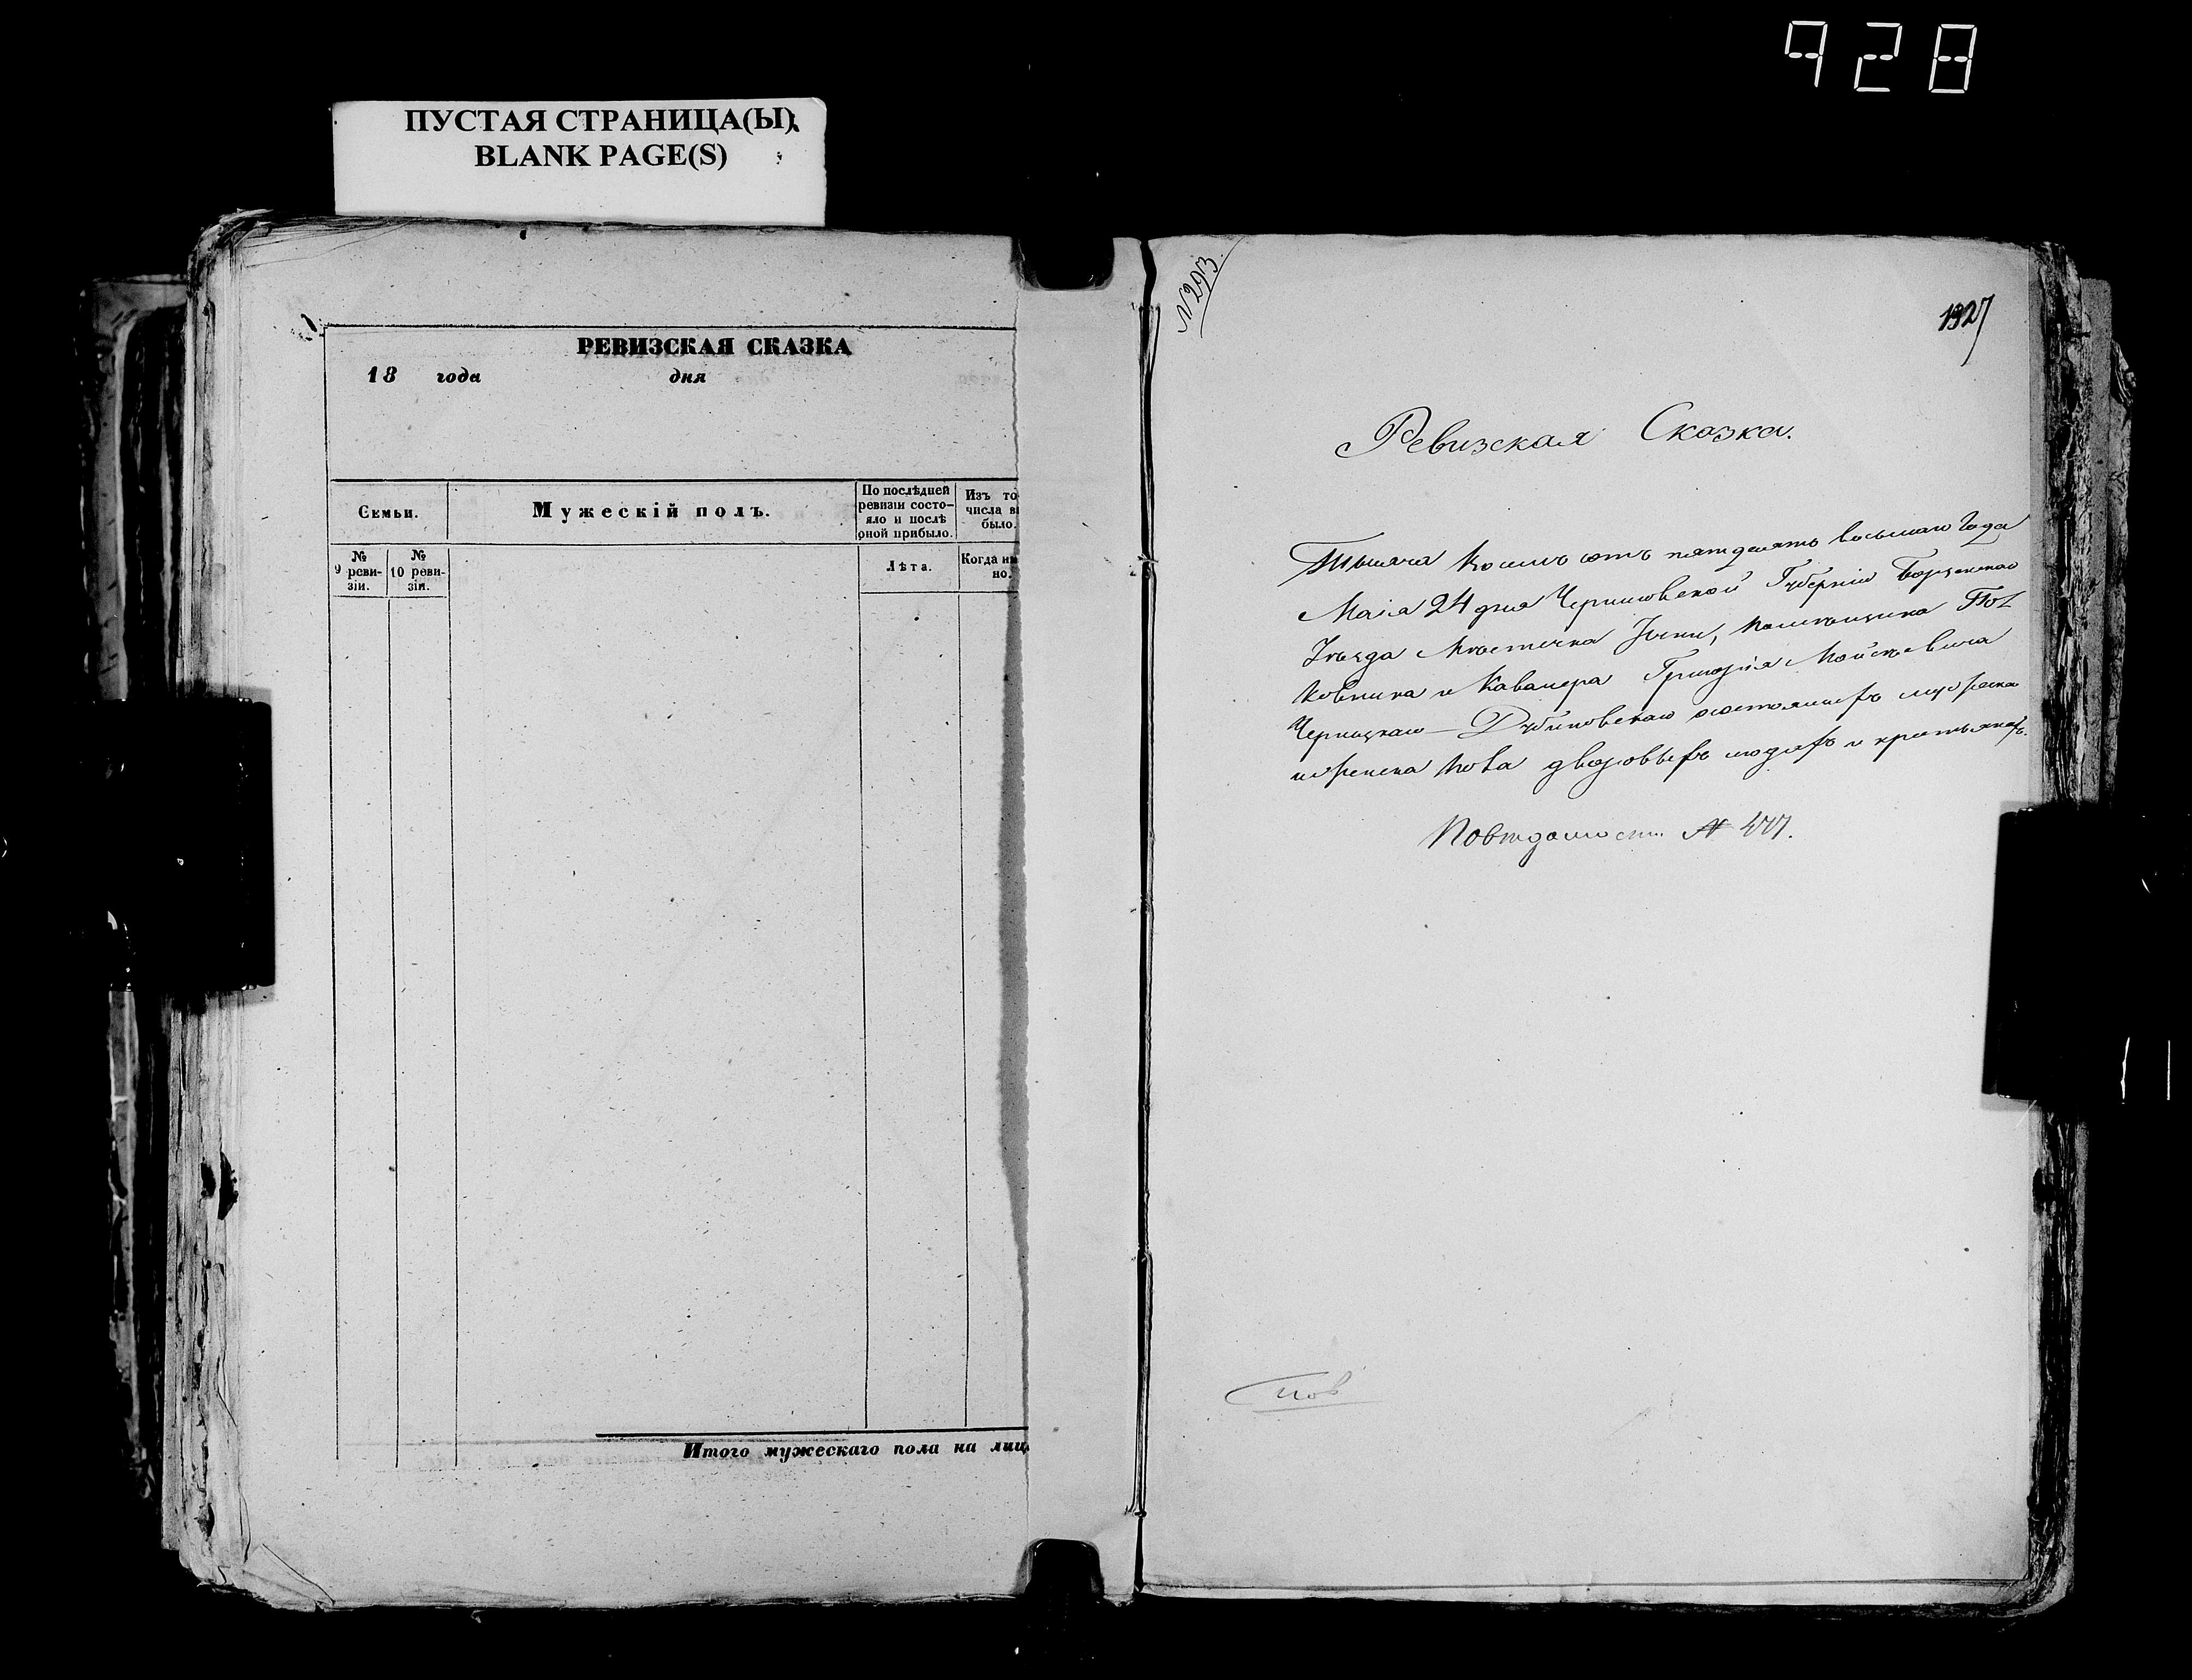 928
ПУСТАЯ СТРАНИЦА(Ы)
BLANK PAGE(S)
РЕВИЗСКАЯ СКАЗКА
18 года дня
Семьи.
Мужескій полъ.
По послѣдней ревизіи состо-
яло и послѣ
оной прибыло.
Изъ то
числа в
было.
№
9 реви-
зіи.
№
10 реви-
зіи.
Лѣта.
Когда и
но.
Итого мужескаго пола на лиц
N 293
1327
Ревизская Сказка.
Тысяча восемь сотъ пятдесятъ восьмаго года
Маія 24 дня Черниговской Губерніи Борзенскаго
Уѣзда Мѣстечка Ични, помѣщика Пол
ковника и Кавалера Григорія Мойсѣевича
мужеска
и женска пола дворовыхъ людяхъ и крестьянахъ.
По вѣдомости №